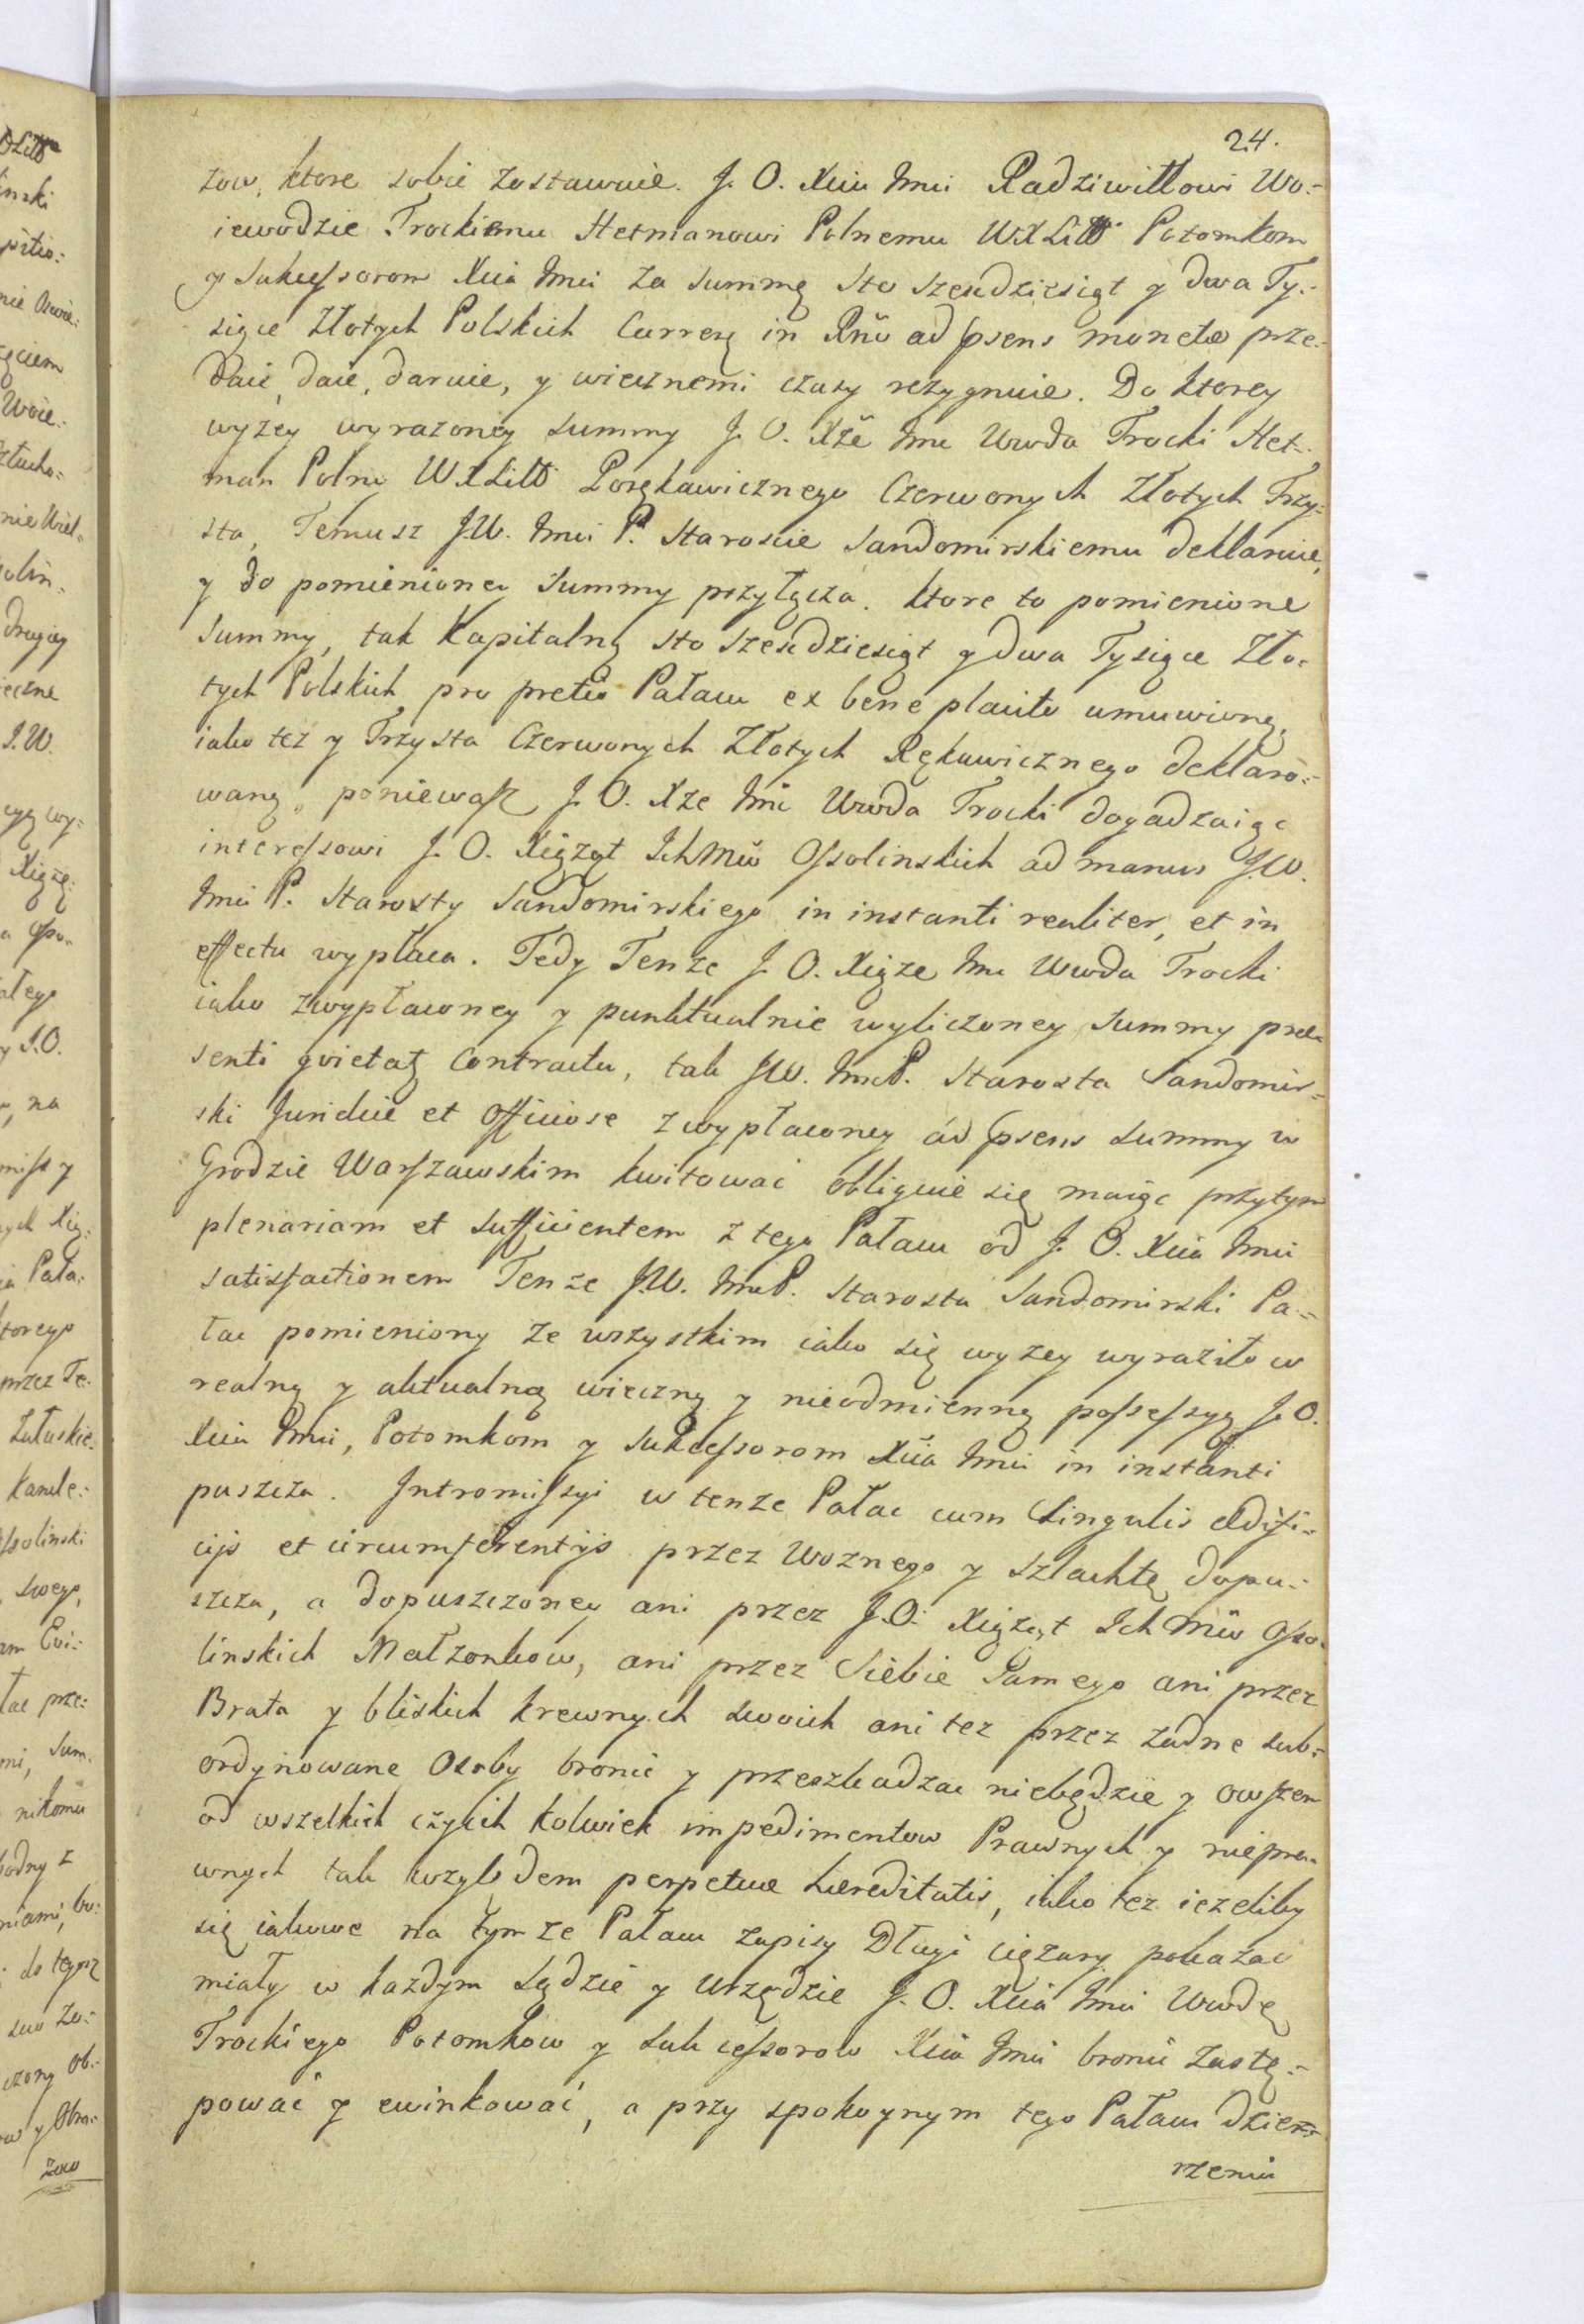 24.
zow, ktore sobie zostawuie. J. O. Xciu Jmci Radziwiłłowi Wo:
iewodzie Trockiemu Hetmanowi Polnemu WXLitt Potomkom
y Sukcessorom Xcia Jmci za summę sto szescdziesiąt y dwa Ty:
siące Złotych Polskich Curren: in Rño ad psens moneta prze:
daie, daie, daruie, y wiecznemi czasy rezygnuie. Do ktorey
wyżey wyrazoney summy J. O. Xże Jmc Wwda Trocki Het:
man Polny WXLitt Porękawicznego Czerwonych Złotych Trzy:
sta, Temusz J.W. Jmci P. Staroscie Sandomirskiemu deklaruie,
y do pomienioney Summy przyłącza. ktore to pomienione
Summy, tak Kapitalną sto szescdziesiąt y dwa Tysiące Zło:
tych Polskich pro pretio Pałacu ex bene placito umuwioną,
iako też y Trzysta Czerwonych Złotych Rękawicznego deklaro:
waną, poniewasz J. O. Xże Jmć Wwda Trocki dogadzaiąc
interessowi J. O. Xiążąt IchMciw Ossolinskich ad manus J.W.
Jmci P. Starosty Sandomirskiego in instanti realiter, et in
effectu wypłaca. Tedy Tenze J. O. Xiąże Jmc Wwda Trocki
iako z wypłaconey y punktualnie wyliczoney summy prae
senti quietat Contractu, tak J.W. Jmc P. Starosta Sandomir:
ski Juridice et Officiose z wypłaconey ad psens summy w
Grodzie Warszawskim kwitować obliguie się maiąc przytym
plenariam et sufficientem z tego Pałacu od J. O. Xcia Jmci
satisfactionem Tenże J.W. Jmc P. Starosta Sandomirski Pa:
łac pomieniony ze wszystkim iako się wyzey wyraziło w
realną y aktualną wieczną y nieodmienną possessyą J. O.
Xciu Jmci, Potomkom y Sukcessorom Xcia Jmci in instanti
puszcza. Intromissyi w tenze Pałac cum Singulis Aedifi:
cijs et circumferentijs przez Woznego y szlachtę dopu:
szcza, a dopuszczoney ani przez J.O. Xiążąt Ich Mciw Osso:
linskich Małżonkow, ani przez Siebie Samego ani przez
Brata y bliskich krewnych swoich ani tez przez żadne sub:
ordynowane Osoby bronić y przeszkadzac niebędzie y owszem
od wszelkich czyich kolwiek impedimentow Prawnych y niepra:
wnych tak względem perpetuae haereditatis, iako tez iezeliby
się iakowe na tymże Pałacu zapisy Długi ciężary pokazac
miały w każdym Sądzie y Urzędzie J. O. Xcia Jmci Wwdę
Trockiego Potomkow y Sukcessorow Xcia Jmci bronić zastę:
pować y ewinkować, a przy spokoynym tego Pałacu dzier:
rzeniu